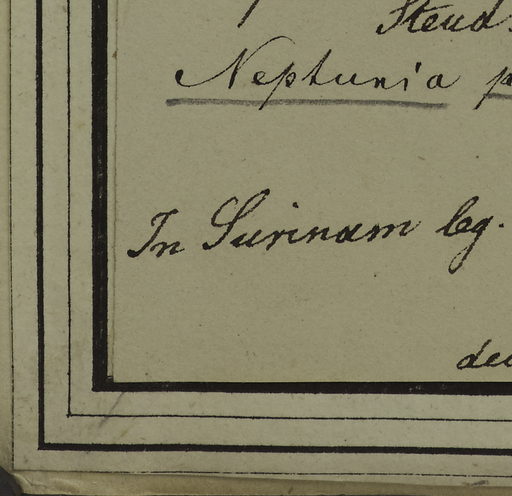 Steud.
Neptunia p
In Surinam leg.